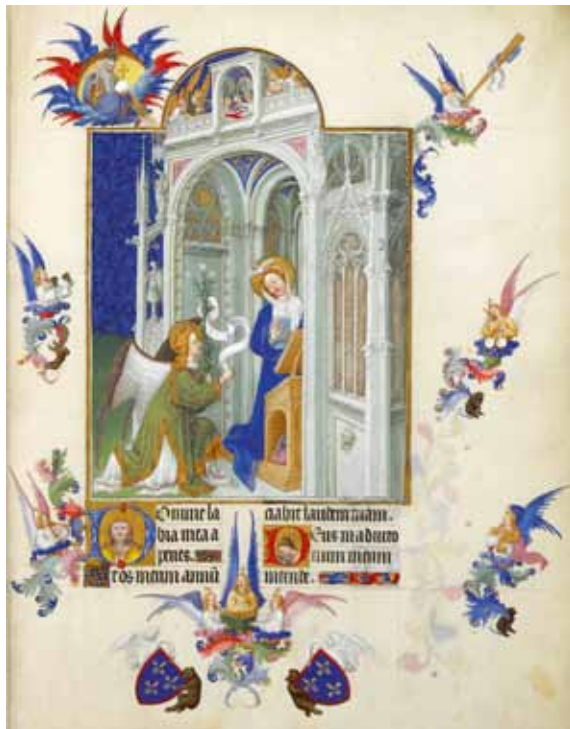 Domine la
bia mea a
peries.
Et os meum annū
ciabit laudem tuam.
Deus in adiuto
rium meum
intende.